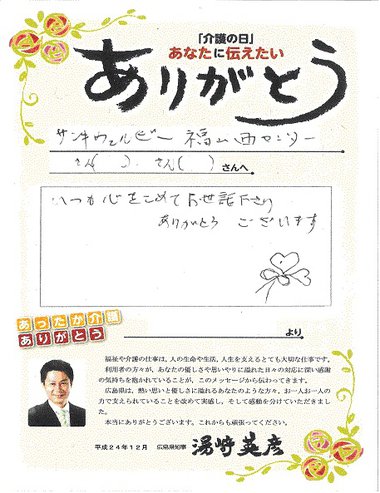 「介護の日」
あなたに伝えたい
ありがとう
サンキウェルビー 福山西センター
さん( ) さん( ) さんへ
いつも心をこめてお世話下さり
ありがとう ございます
あったか介護
ありがとう
より
福祉や介護の仕事は、人の生命や生活、人生を支えるとても大切な仕事です。
利用者の方々が、あなたの優しさや思いやりに溢れた日々の対応に深い感謝
の気持ちを抱かれていることが、このメッセージから伝わってきます。
広島県は、熱い思いと優しさに溢れるあなたのような方々、お一人お一人の
力で支えられていることを改めて実感し、そして感動を分けていただきまし
た。
本当にありがとうございます。これからも頑張ってください。
平成24年12月 広島県知事 湯﨑英彦